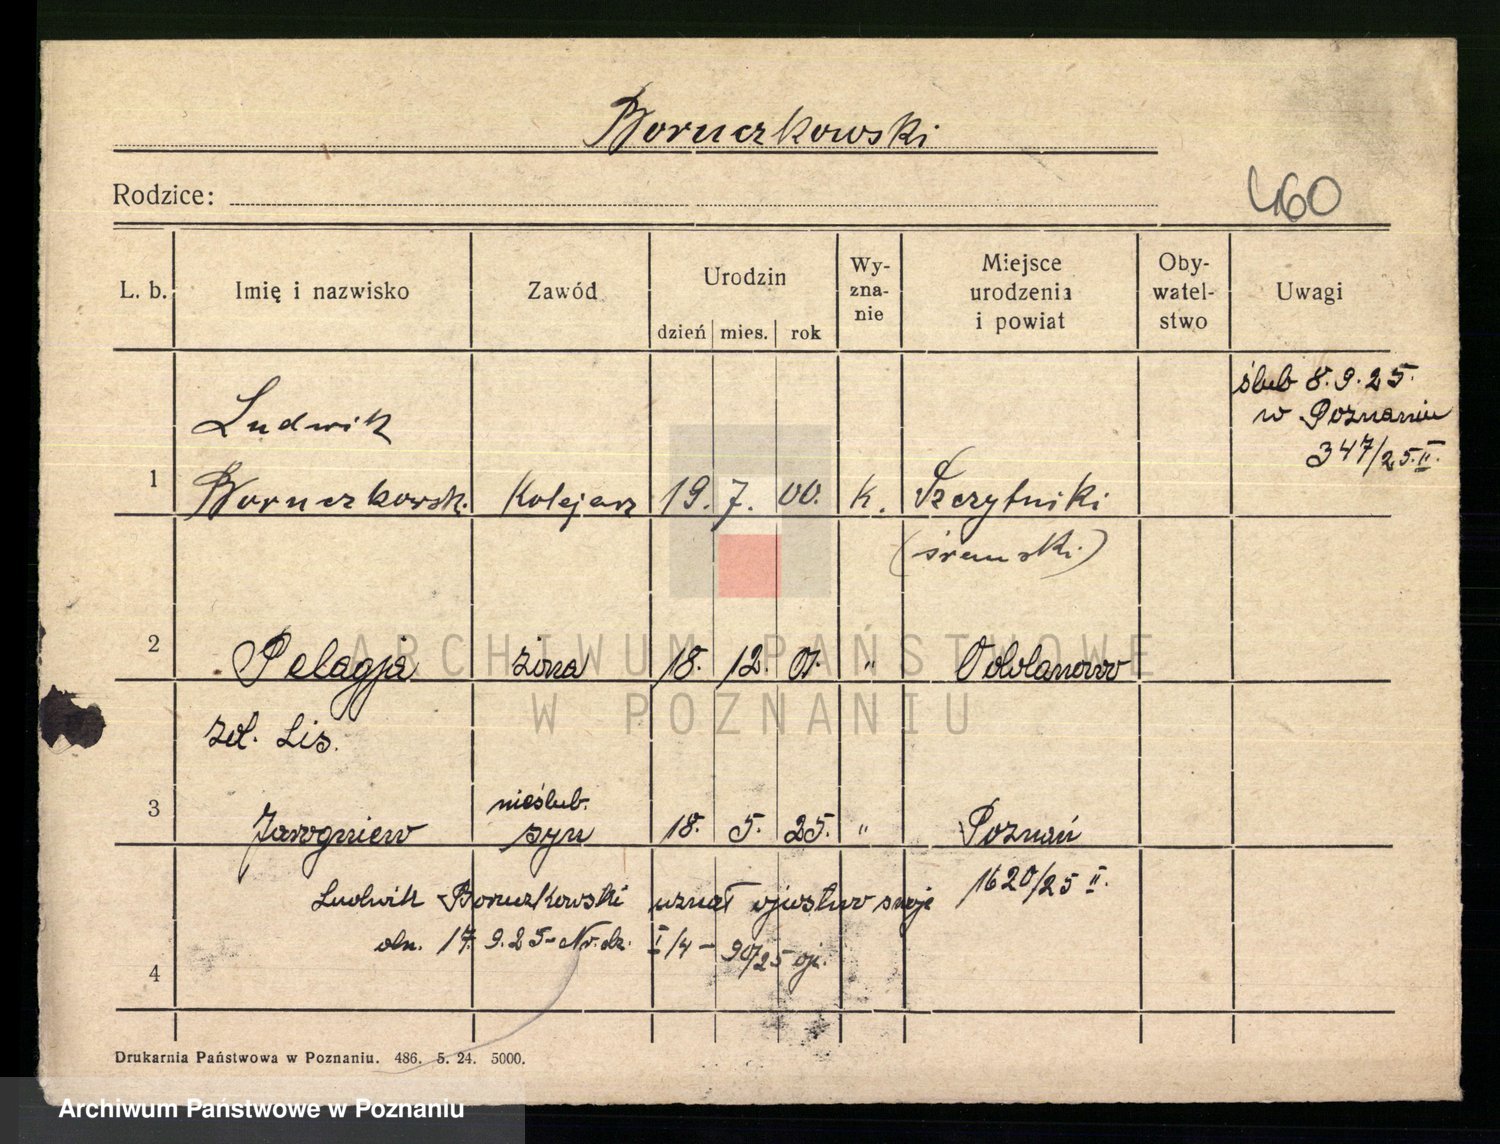 Boruczkowski
Rodzice:
460
L. b. Imię i nazwisko Zawód Urodzin dzień mies. rok Wy-zna-nie Miejsce urodzenia i powiat Oby-watel-stwo Uwagi
ślub 8.9.25.
w Poznaniu
347/25.II.
Ludwik
1 Boruczkowsk. Kolejarz 19. 7. 00. k. Szczytniki
(śremski)
2 Pelagja żona 18. 12. 01. " Odolanowo
zd. Lis.
nieślub.
3 Jarogniew syn 18. 5. 25. " Poznań
1620/25 II.
Ludwik Boruczkowski uznał ojcostwo swoje
dn. 17. 9. 25 - Nr. dz. I/4 - 90/25 oj.
4
Drukarnia Państwowa w Poznaniu. 486. 5. 24. 5000.
ARCHIWUM PAŃSTWOWE
W POZNANIU
Archiwum Państwowe w Poznaniu